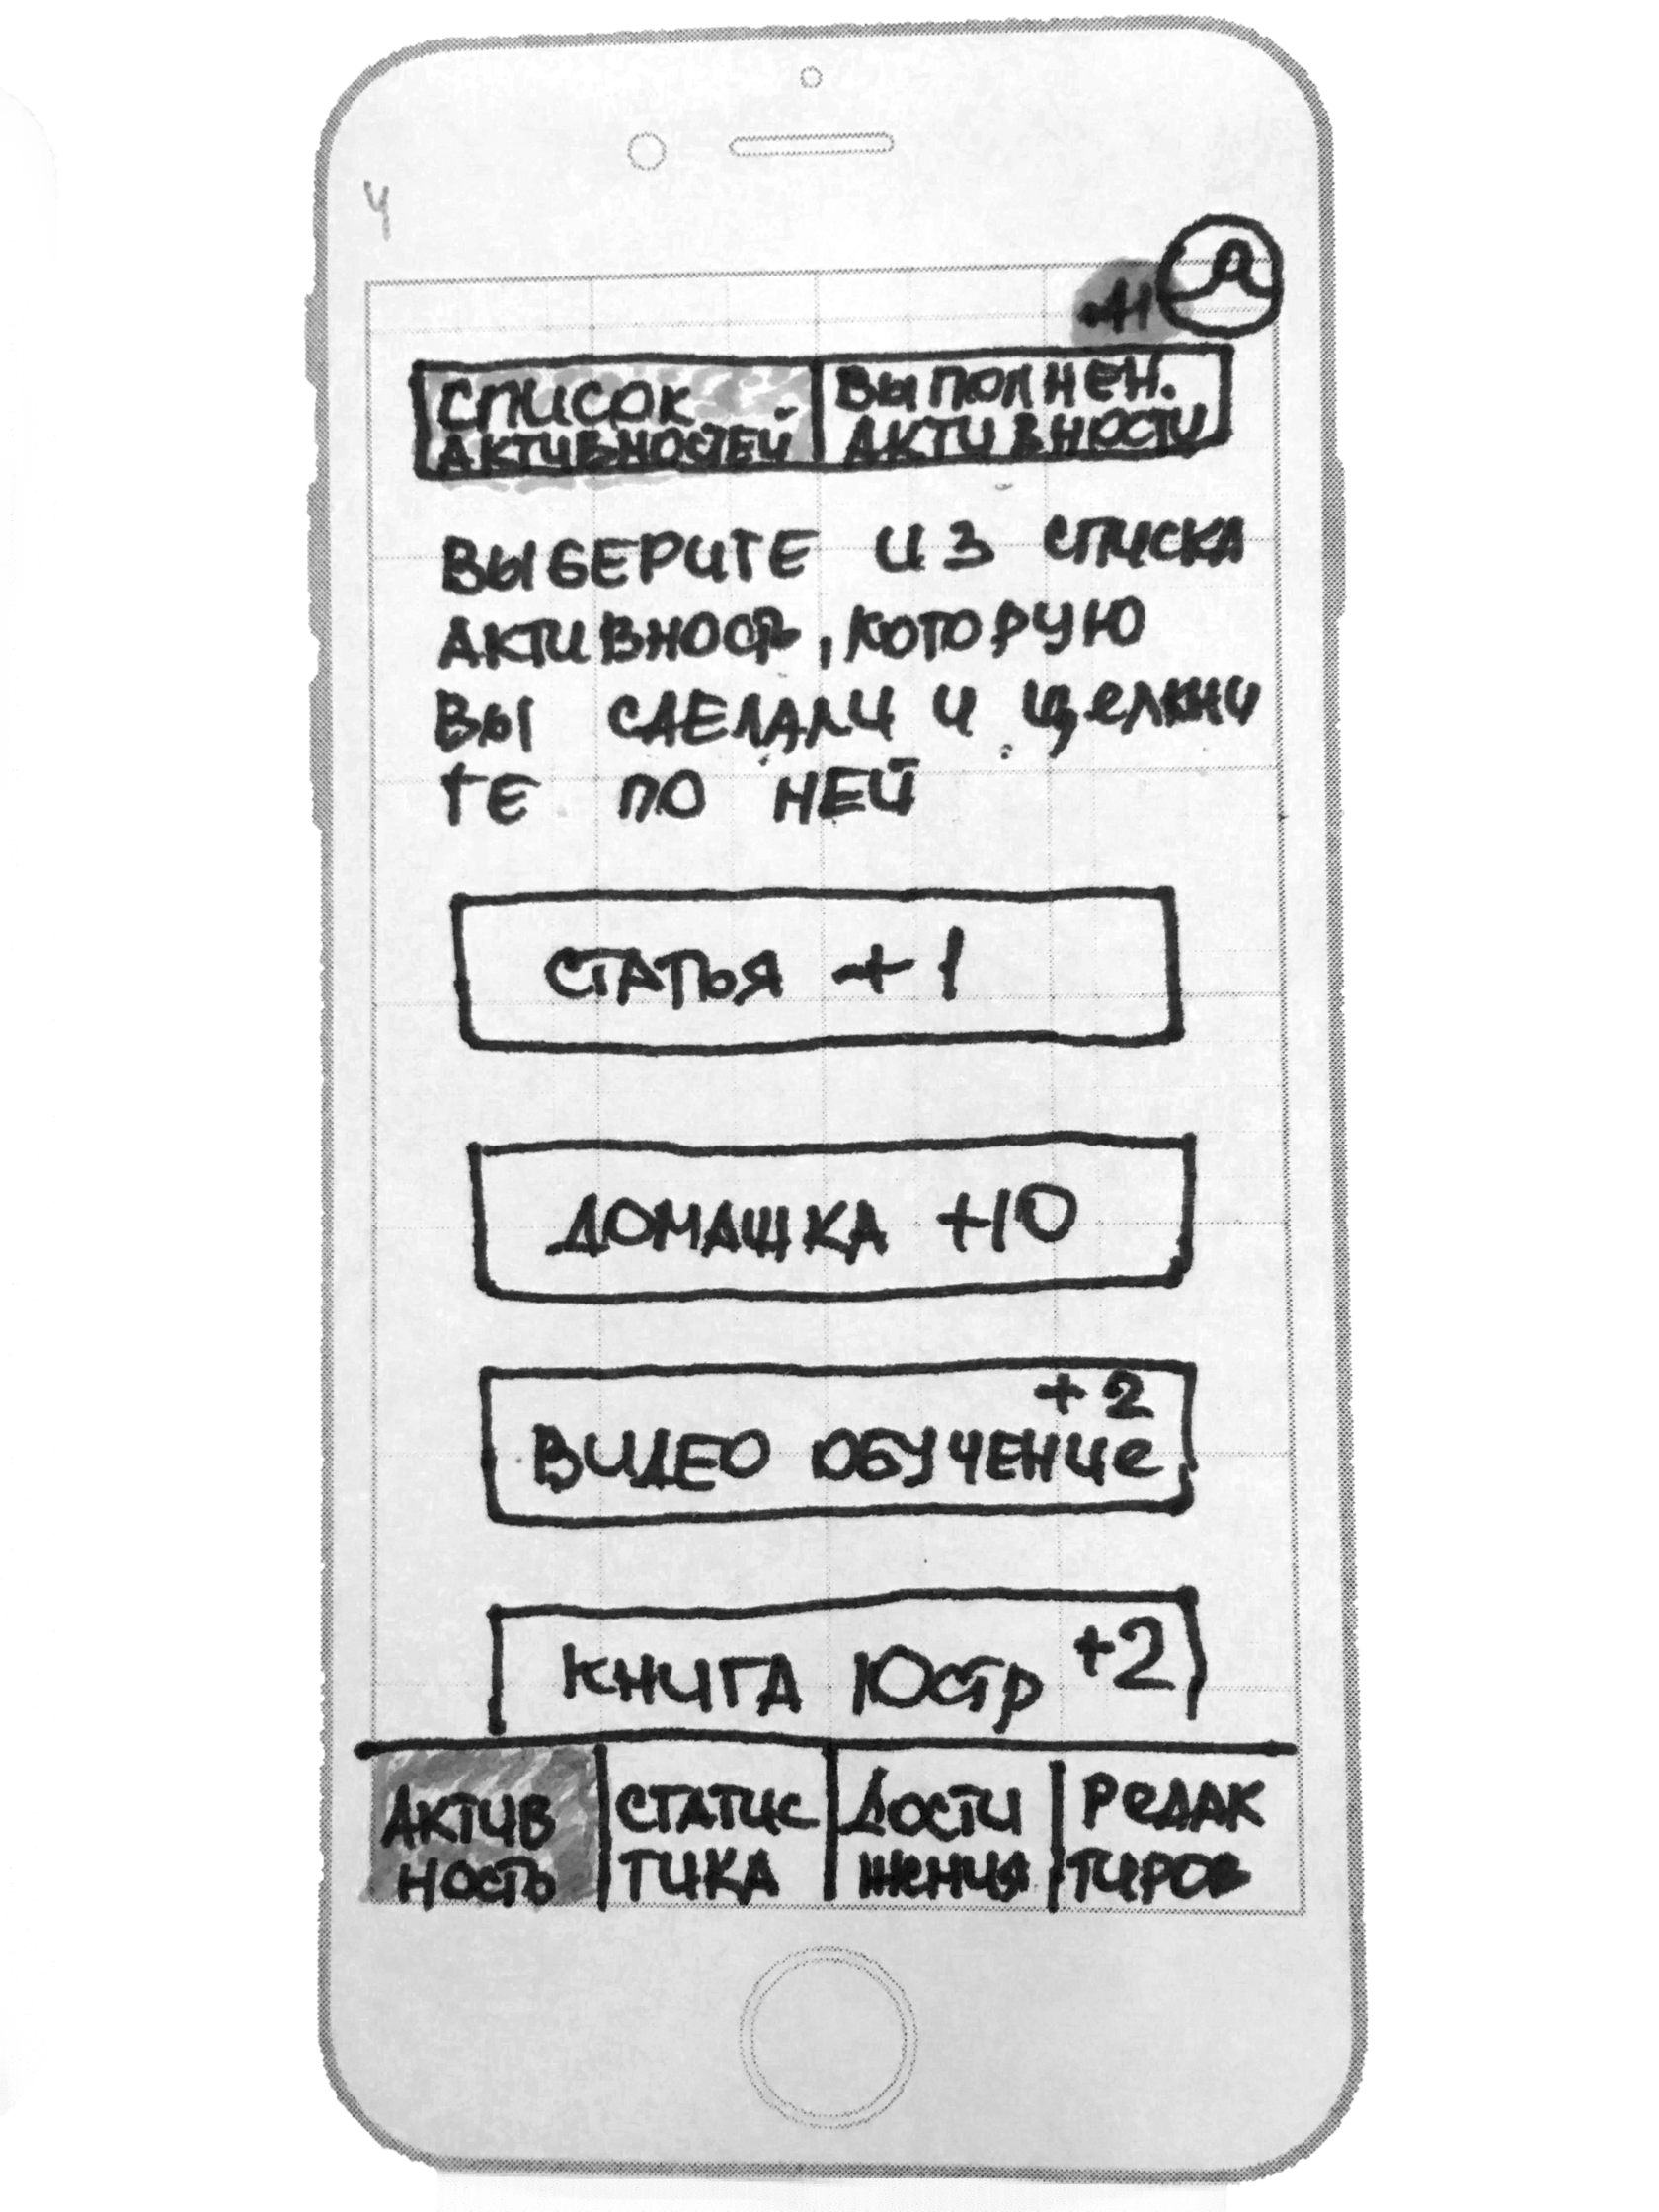 4
СПИСОК
АКТИВНОСТЕЙ
ВЫПОЛНЕН.
АКТИВНОСТИ
ВЫБЕРИТЕ ИЗ СПИСКА
АКТИВНОСТЬ, КОТОРУЮ
ВЫ СДЕЛАЛИ И ЩЕЛКНИ
ТЕ ПО НЕЙ
СТАТЬЯ +1
ДОМАШКА +10
+2
ВИДЕО ОБУЧЕНИЕ
КНИГА ЮСТР +2
АКТИВ
НОСТЬ
СТАТИС
ТИКА
ДОСТИ
ЖЕНИЯ
РЕДАК
ТИРОВ